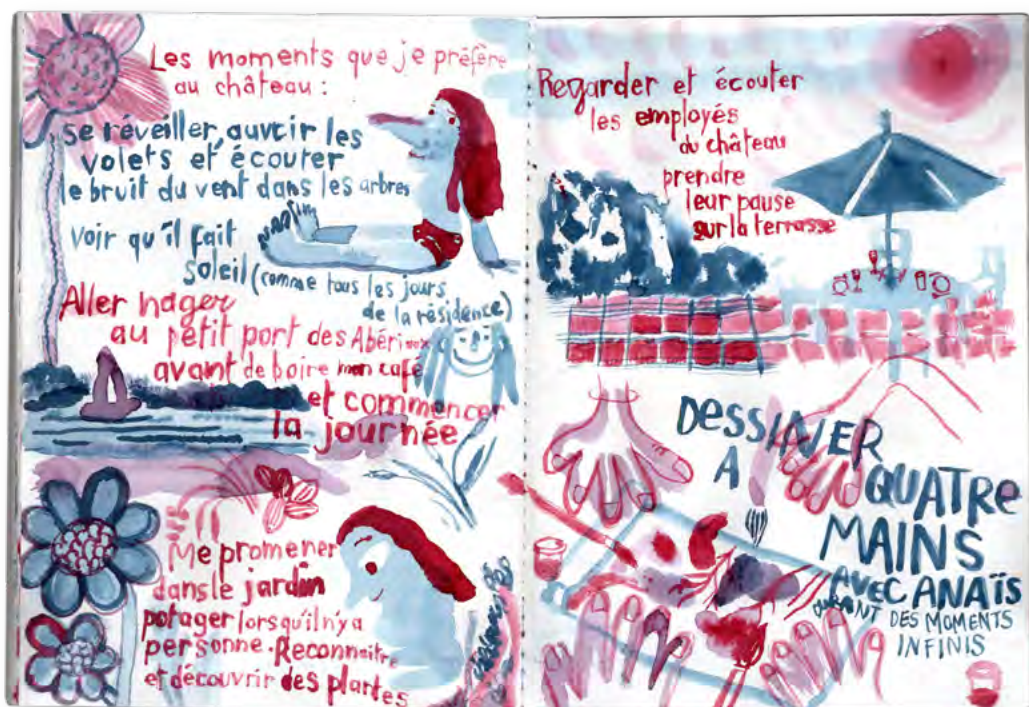 Les moments que je préfère
au château :
se réveiller, ouvrir les
volets et écouter
le bruit du vent dans les arbres
voir qu'il fait
soleil (comme tous les jours
de la résidence)
Aller nager
au petit port des Abéri
avant de boire mon café
et commencer
la journée
Me promener
dans le jardin
potager lorsqu'il n'y a
personne. Reconnaitre
et découvrir des plantes
Regarder et écouter
les employés
du château
prendre
leur pause
sur la terrasse
DESSINER
A
QUATRE
MAINS
AVEC ANAÏS
DURANT DES MOMENTS
INFINIS